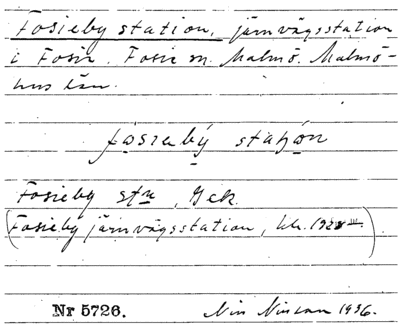 Fosieby station, järnvägsstation
i Fosie. Fosie sn. Malmö. Malmö-
hus län.
fosiabý staʃon
Fosieby stn, Gek.
(Fosieby järnvägsstation, kh. 1928 III)
Nr 5726.
Nin Ninson 1936.